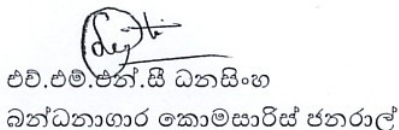 එච්.එම්.එන්.සී ධනසිංහ
බන්ධනාගාර කොමසාරිස් ජනරාල්